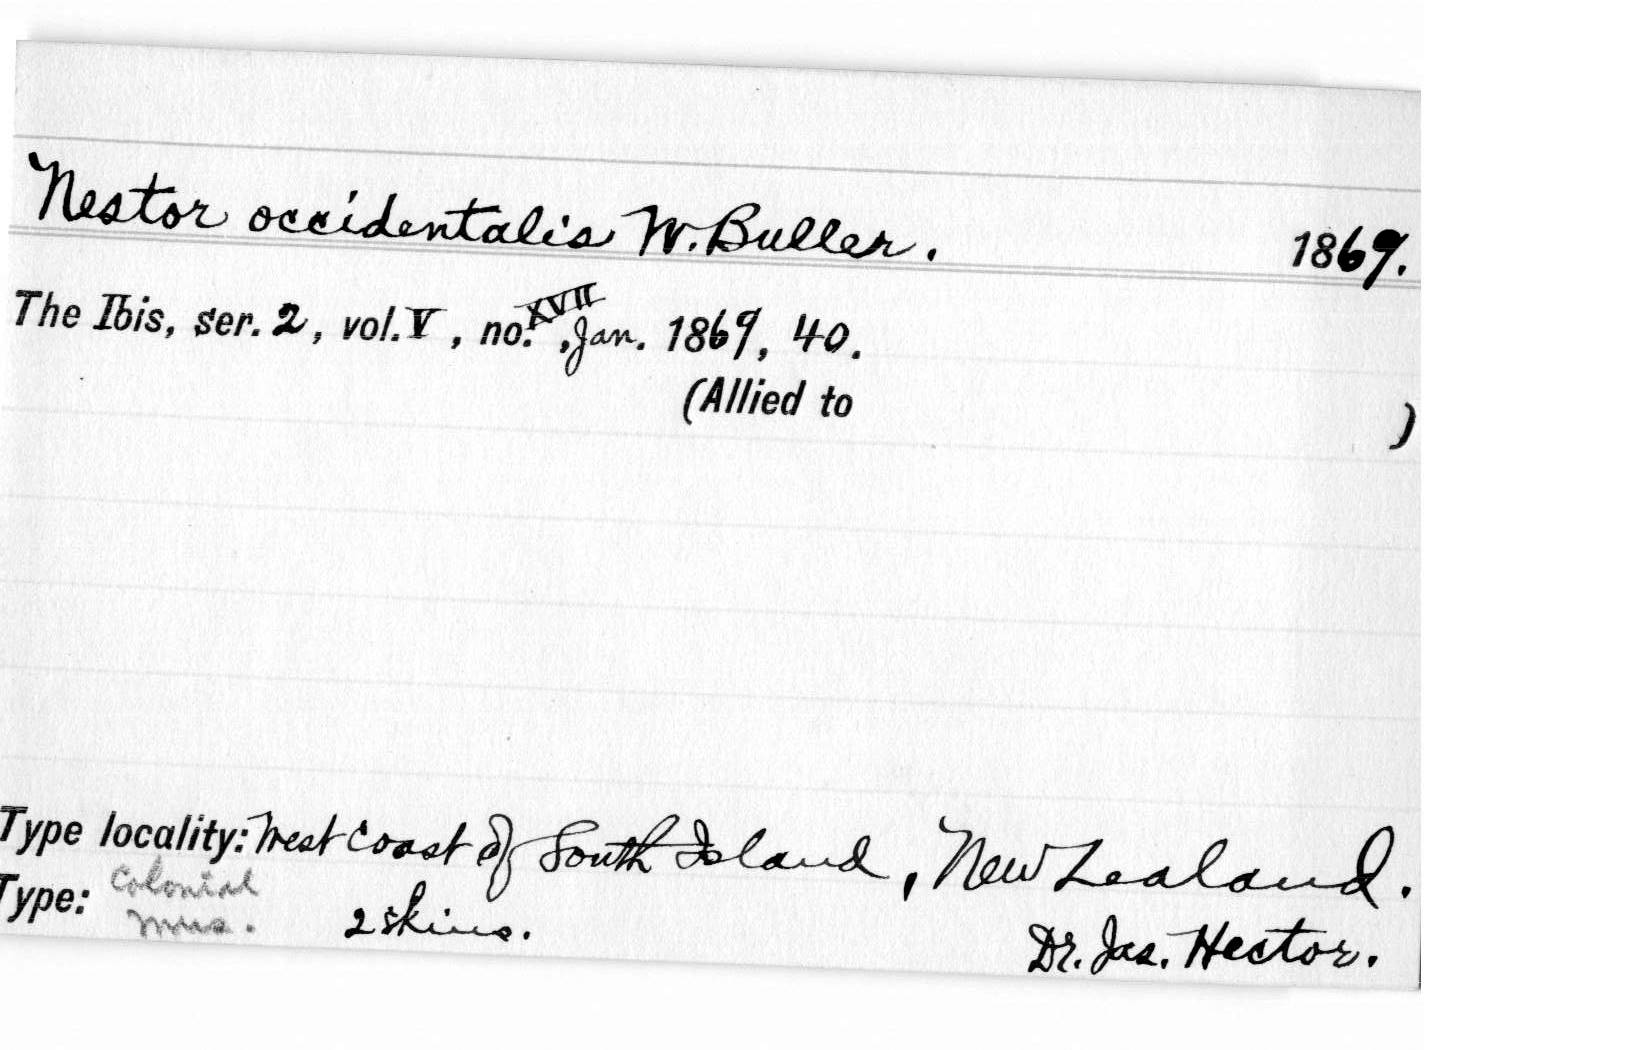 Nestor occidentalis W. Buller. 1869.
The Ibis, ser. 2, vol. V, no. XVII, Jan. 1869, 40.
(Allied to )
Type locality: West Coast of South Island, New Zealand.
Type: Colonial Mus. 2 skins. Dr. Jas. Hector.